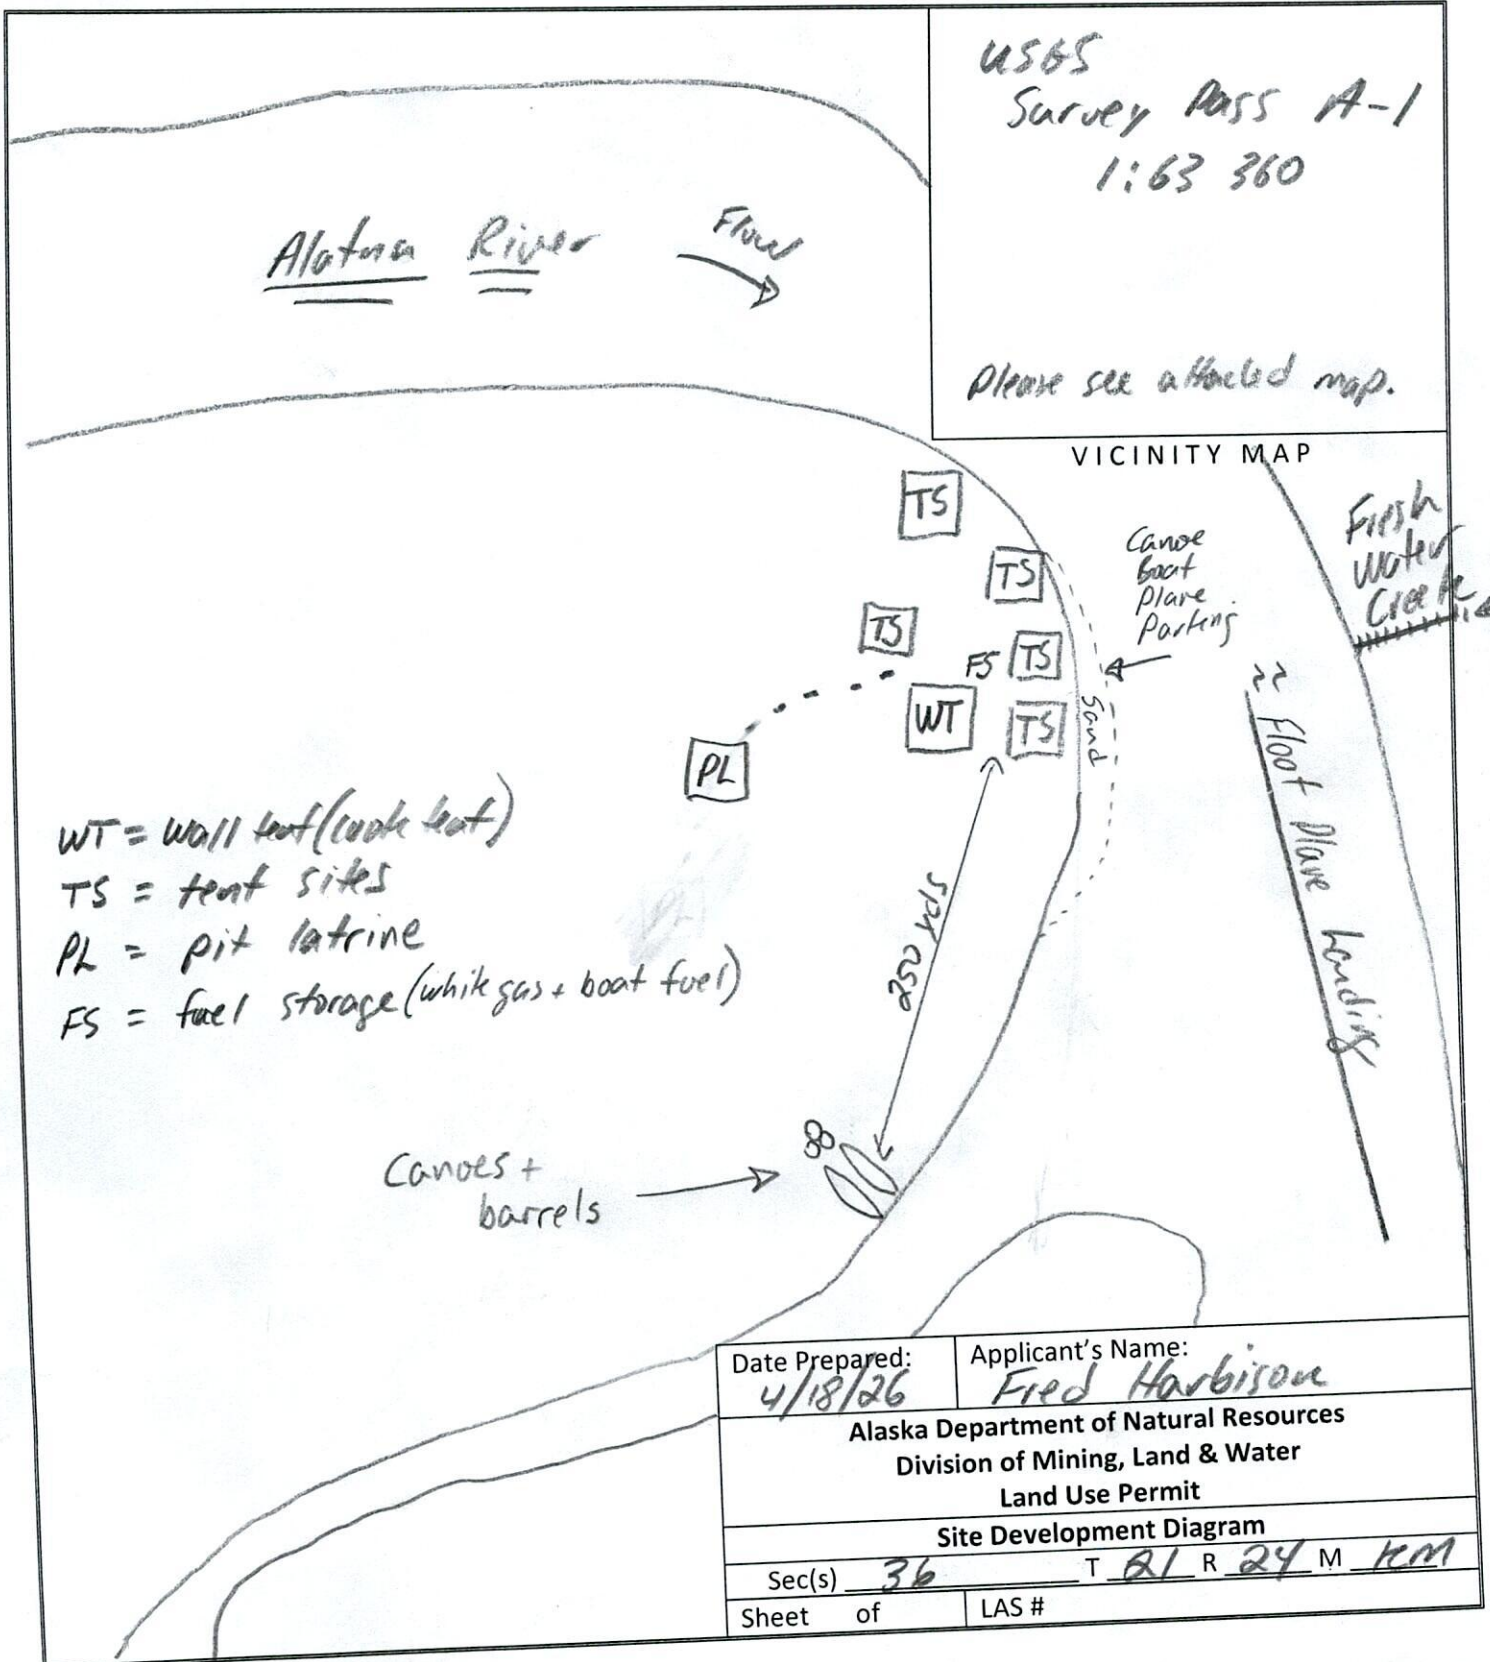 USGS
Survey Pass A-1
1:63 360
Please see attached map.
VICINITY MAP
Alatna River
Flow
Fresh
Water
Creek
Canoe
Boat
Plane
Parking
TS
TS
TS
FS TS
WT TS
Sand
PL
Float Plane Landing
WT = wall tent (cook tent)
TS = tent sites
PL = pit latrine
FS = fuel storage (white gas + boat fuel)
250 yds
Canoes +
barrels
Date Prepared:
4/18/26
Applicant's Name:
Fred Harbison
Alaska Department of Natural Resources
Division of Mining, Land & Water
Land Use Permit
Site Development Diagram
Sec(s) 36 T 21 R 24 M KRM
Sheet of LAS #